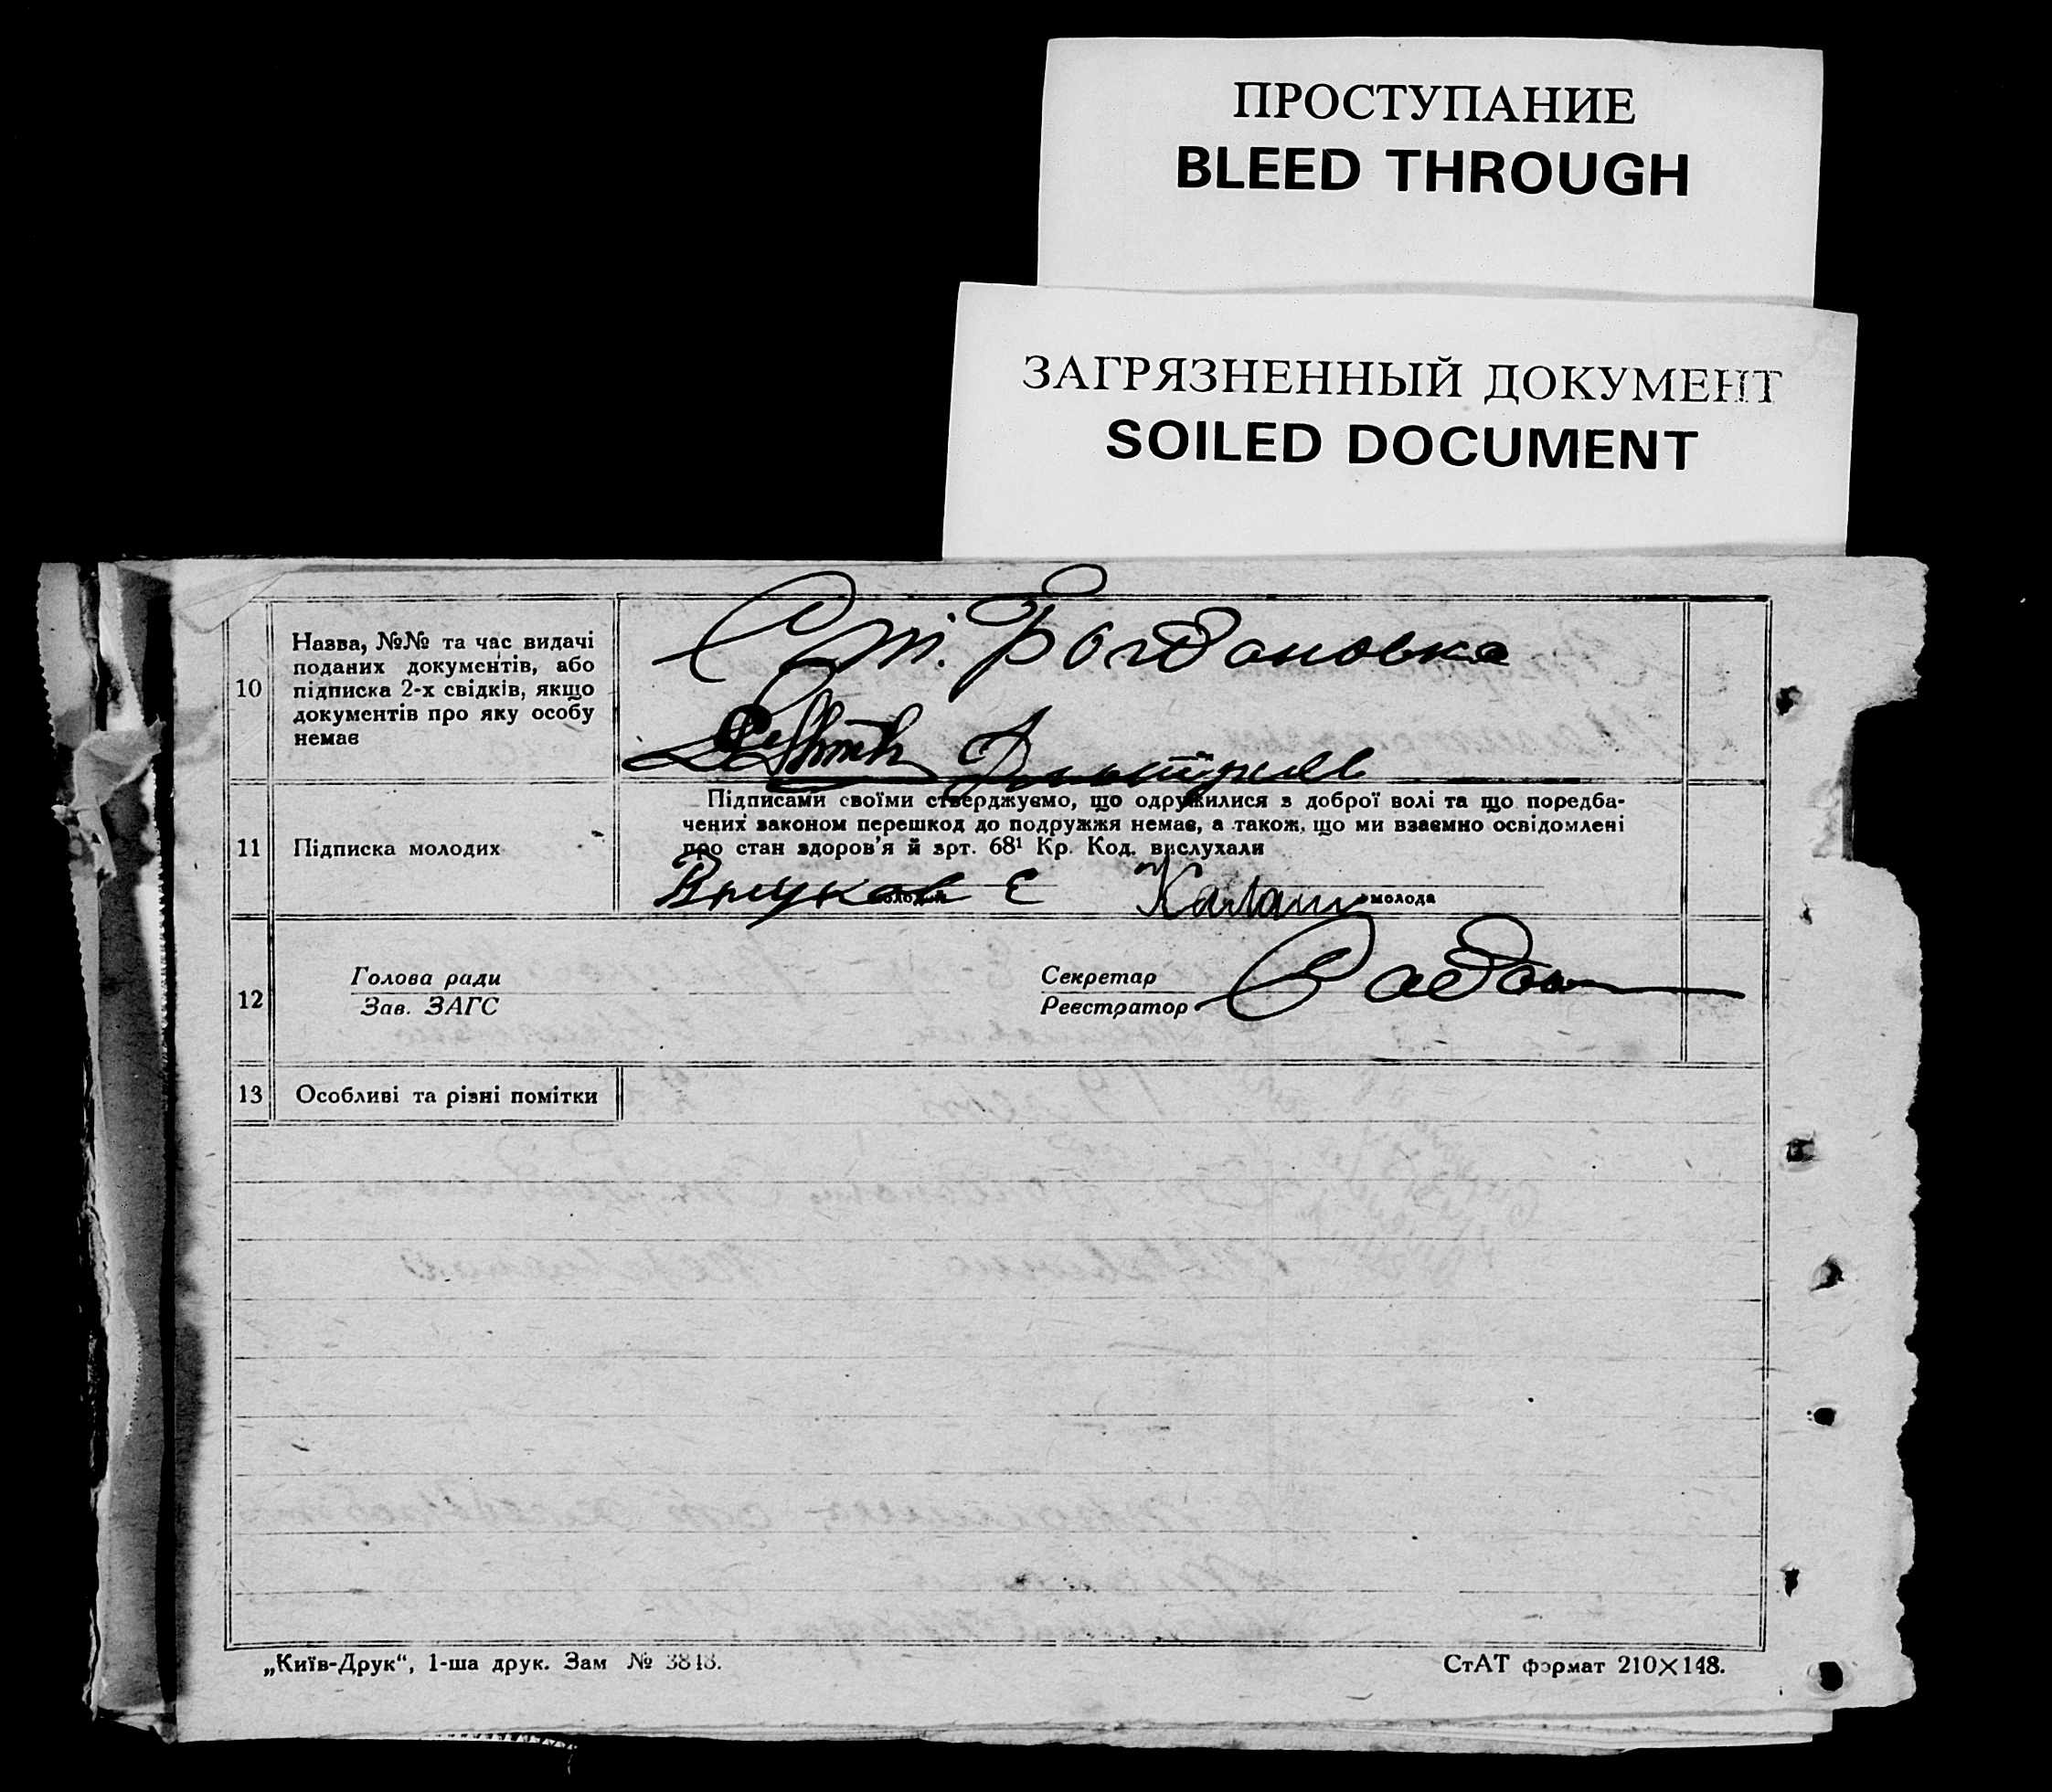 ПРОСТУПАНИЕ
BLEED THROUGH
ЗАГРЯЗНЕННЫЙ ДОКУМЕНТ
SOILED DOCUMENT
10
Назва, №№ та час видачі
поданих документів, або
підписка 2-х свідків, якщо
документів про яку особу
немає
Ст. Богдановка
11
Підписка молодих
Підписами своїми стверджуємо, що одружилися з доброї волі та що поредба-
чених законом перешкод до подружжя немає, а також, що ми взаємно освідомлені
про стан здоров'я й арт. 68¹ Кр. Код. вислухали
молодий
молода
12
Голова ради
Зав. ЗАГС
Секретар
Реєстратор
13
Особливі та різні помітки
„Київ-Друк“, 1-ша друк. Зам №
СтАТ формат 210×148.